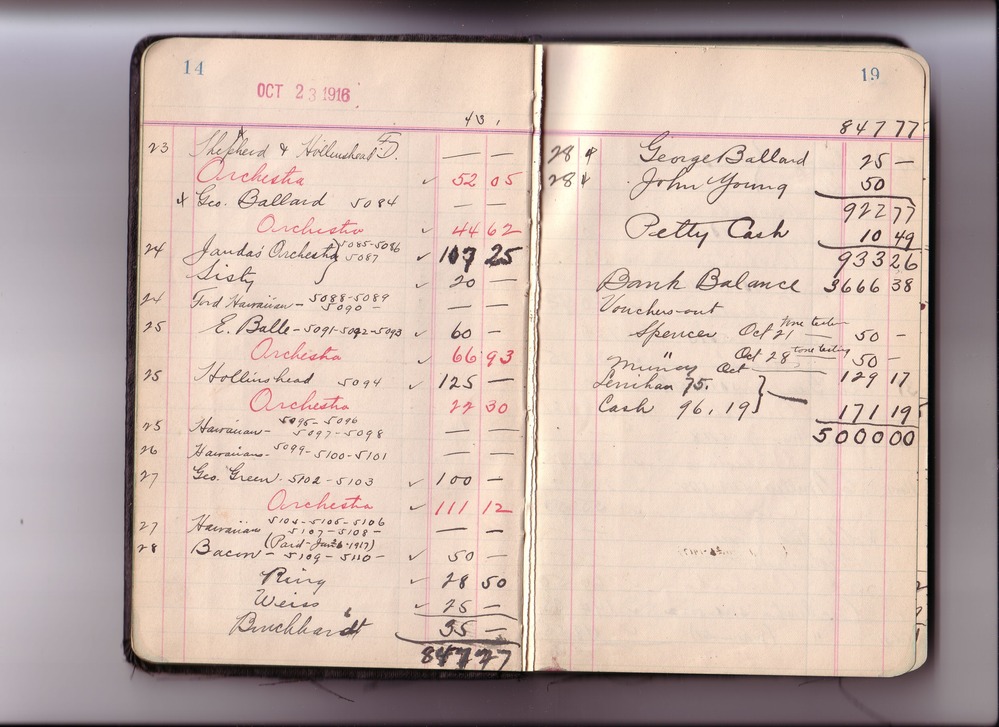 14
OCT 23 1916
23 Shepherd & Hollinshead — —
Orchestra ✓ 52 05
Geo. Ballard 5084 — —
Orchestra ✓ 44 62
24 Janda's Orchestra 5085-5086 5087 ✓ 107 25
Sisty ✓ 20 —
24 Ford Hawaiian - 5088-5089 5090 - — —
25 E. Balle - 5091-5092-5093 ✓ 60 —
Orchestra ✓ 66 93
25 Hollinshead 5094 ✓ 125 —
Orchestra ✓ 22 30
25 Hawaiian - 5095-5096 5097-5098 — —
26 Hawaiians - 5099-5100-5101 — —
27 Geo. Green. 5102-5103 ✓ 100 —
Orchestra ✓ 111 12
27 Hawaiian 5104-5105-5106 5107-5108- — —
(Paid-Jan 6-1917)
28 Bacon - 5109-5110- ✓ 50 —
Ring ✓ 28 50
Weiss ✓ 25 —
35 —
847 77
19
847 77
28 George Ballard 25 —
28 John Young 50
922 77
Petty Cash 10 49
933 26
Bank Balance 3666 38
Vouchers-out
Spencer Oct 21 tone tester 50 —
" Oct 28 tone testing 50 —
Oct 129 17
Lenihan 75.
Cash 96.19 } 171 19
5000 00